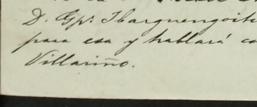 D. Gpe. Ibarguengoiti
para esa y hablará co
Villariño.